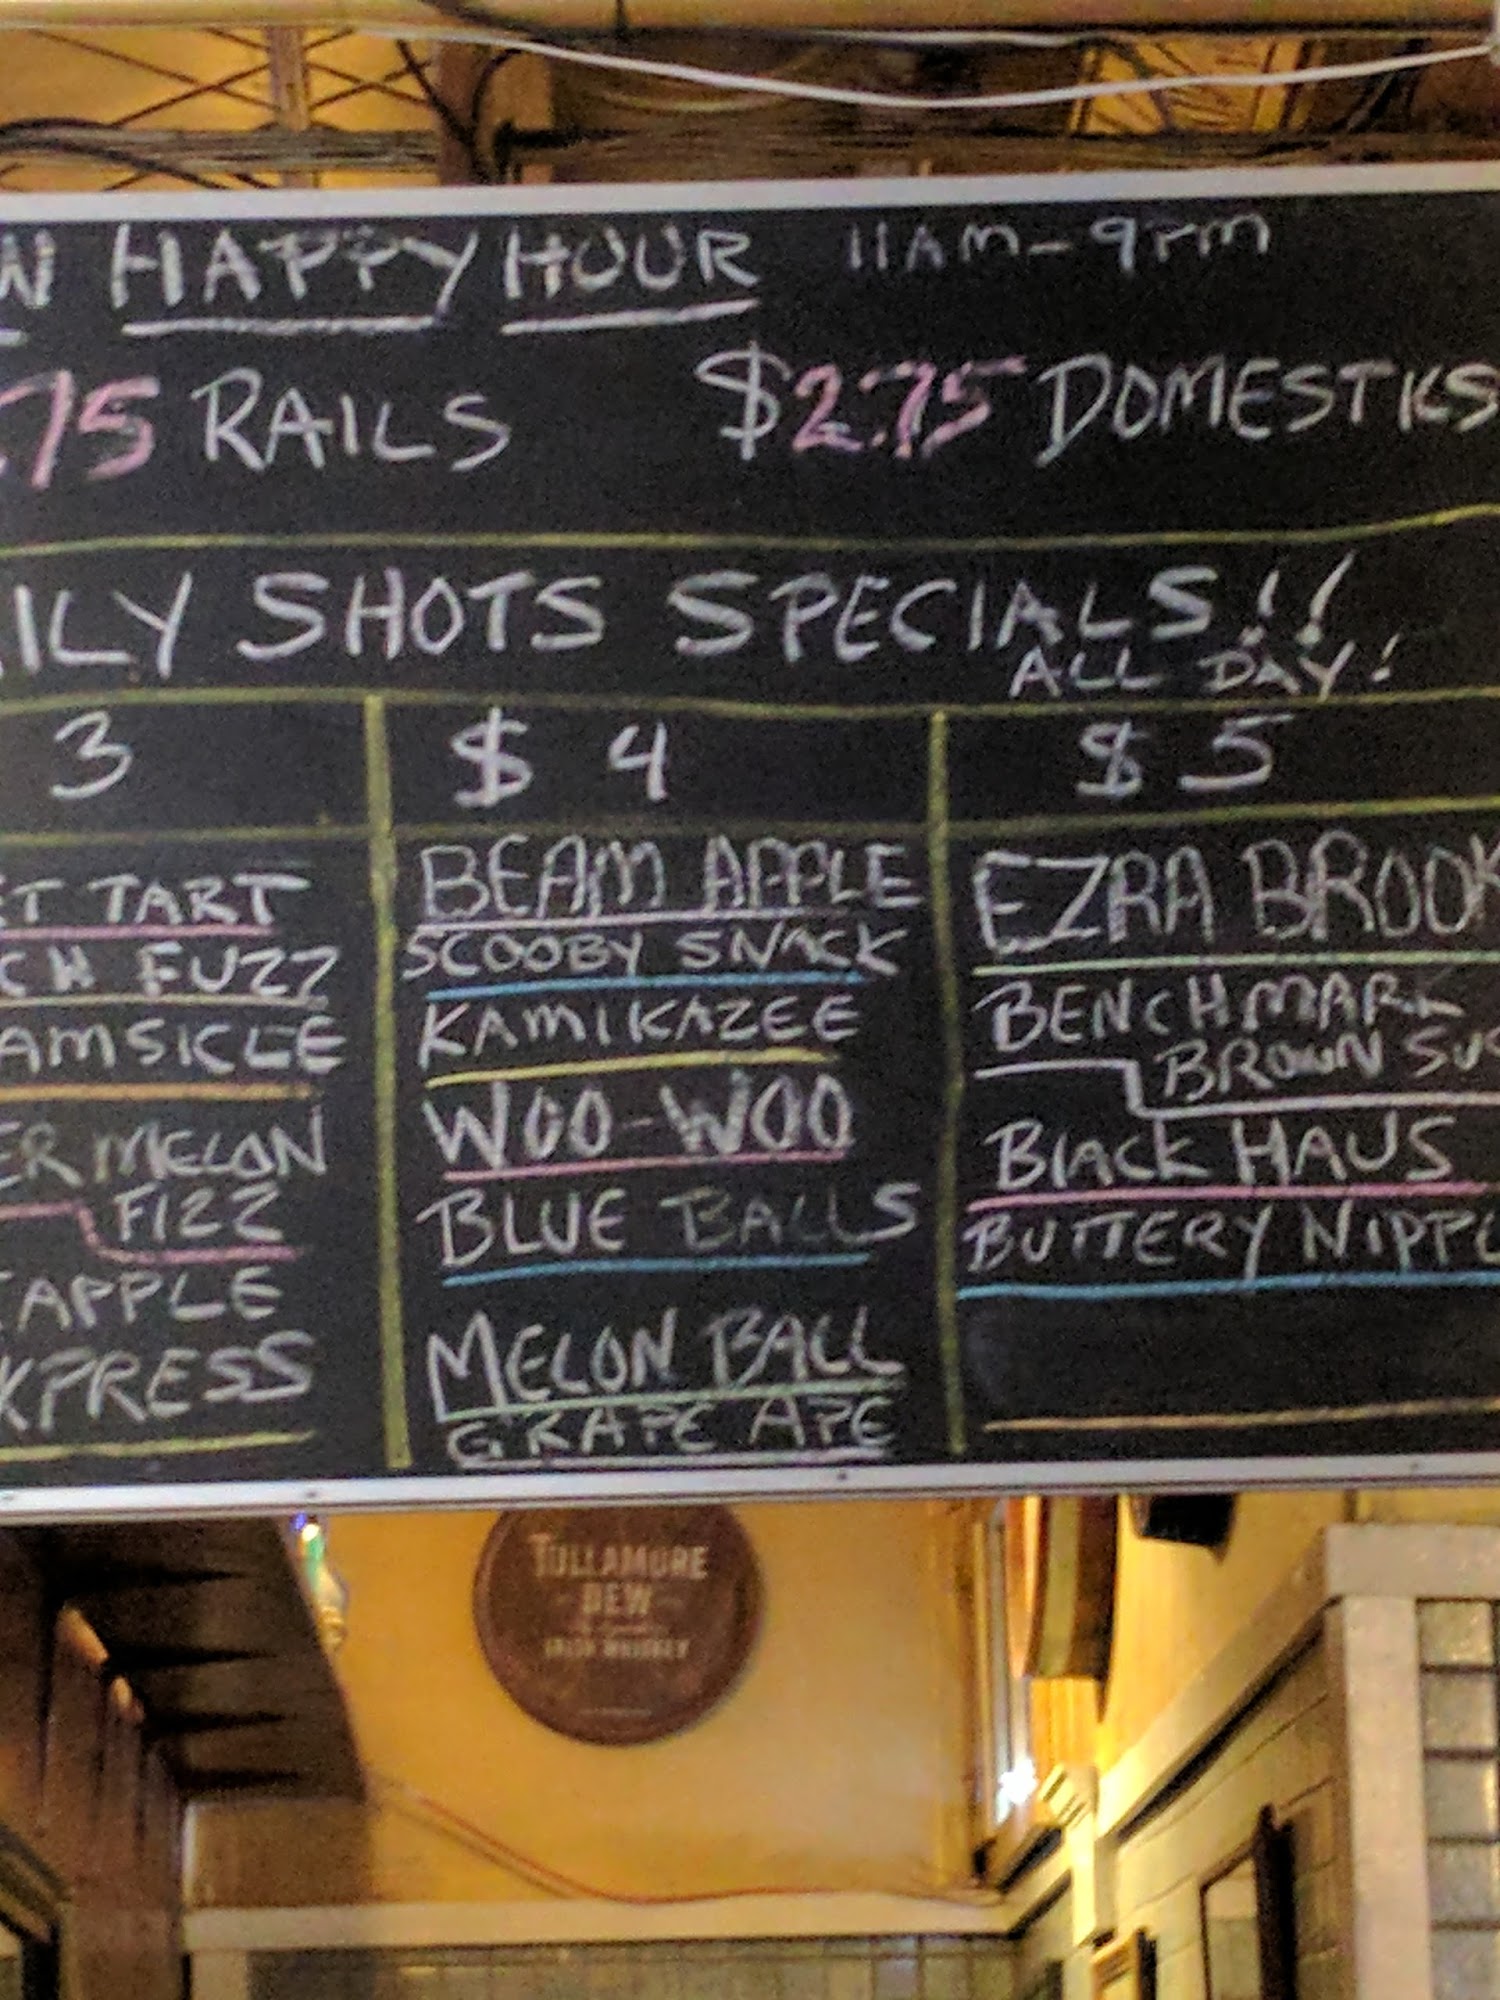 N HAPPY HOUR 11AM-9PM
.75 RAILS $2.75 DOMESTICS
ILY SHOTS SPECIALS!!
ALL DAY!
3 $4 $5
ET TART
CH FUZZ
AMSICLE
ER MELON
FIZZ
APPLE
XPRESS
BEAM APPLE
SCOOBY SNACK
KAMIKAZEE
WOO-WOO
BLUE BALLS
MELON BALL
GRAPE APE
EZRA BROOK
BENCHMARK
BROWN SUG
BLACK HAUS
BUTTERY NIPPL
TULLAMORE
DEW
IRISH WHISKEY